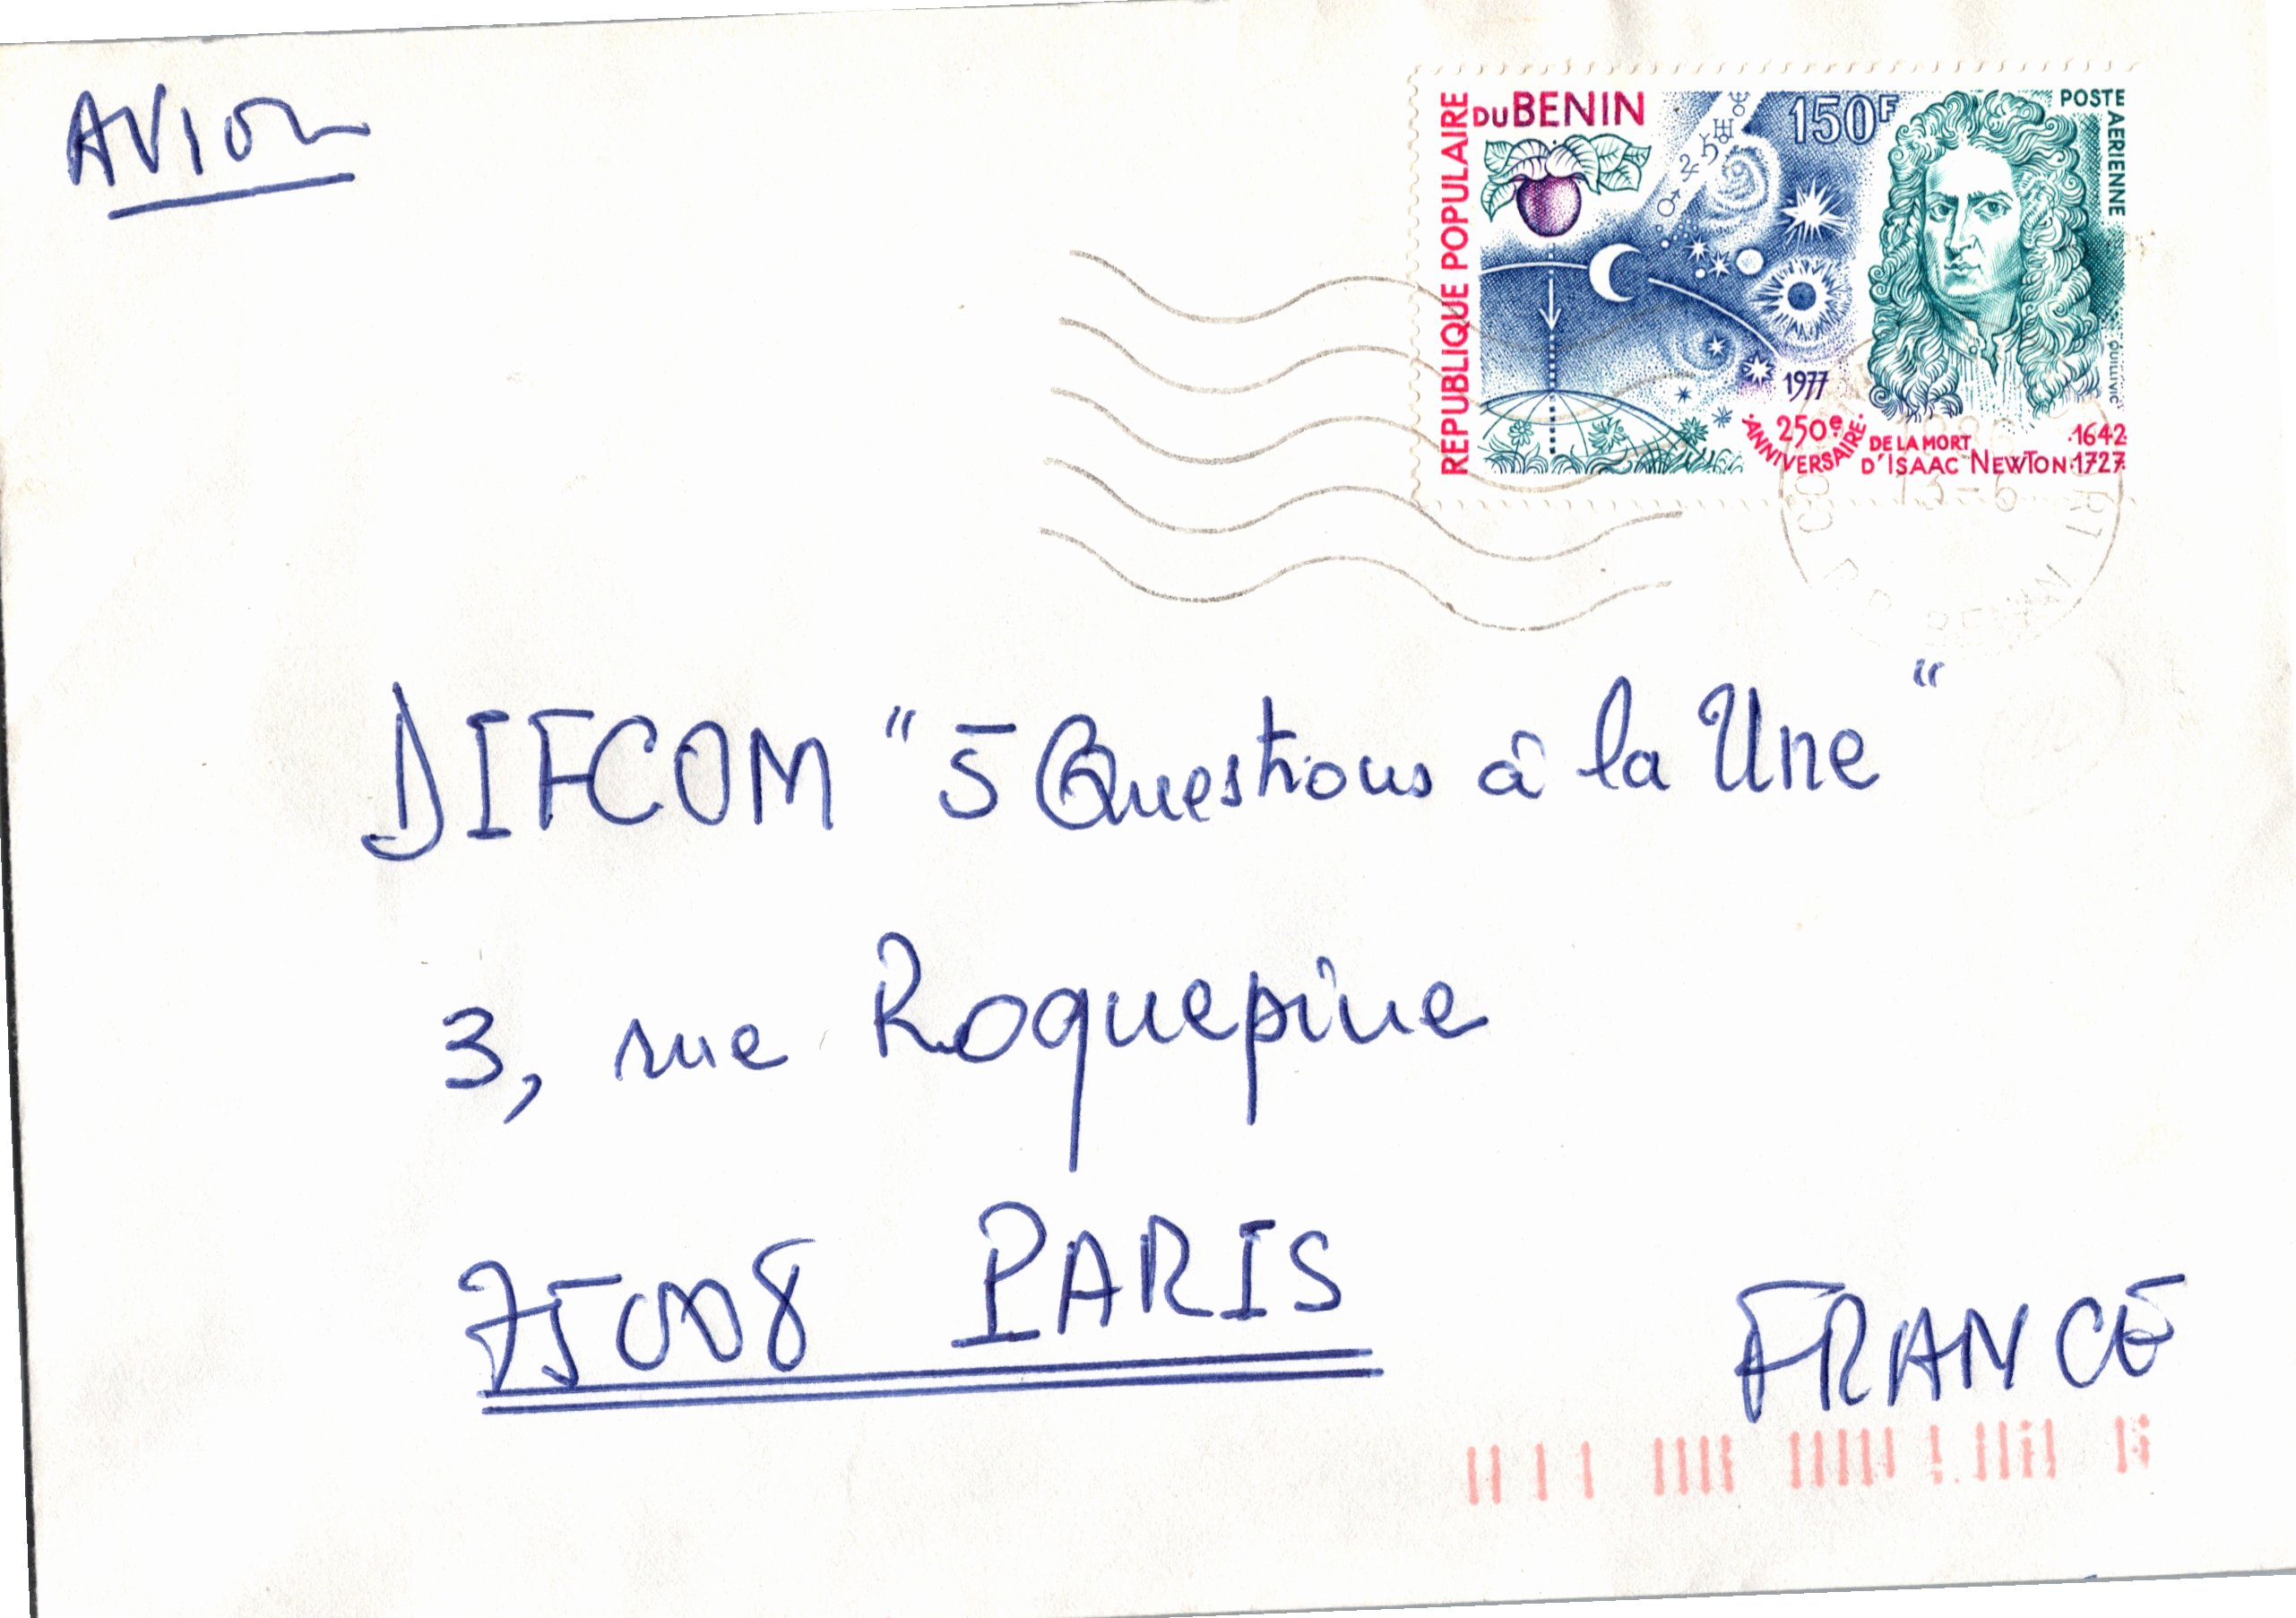 AVION
REPUBLIQUE POPULAIRE
DU BENIN
150F
POSTE AERIENNE
1977
250e
ANNIVERSAIRE
DE LA MORT
D'ISAAC NEWTON
1642
1727
13-6
DIFCOM "5 Questions à la Une"
3, rue Roquepine
75008 PARIS
FRANCE